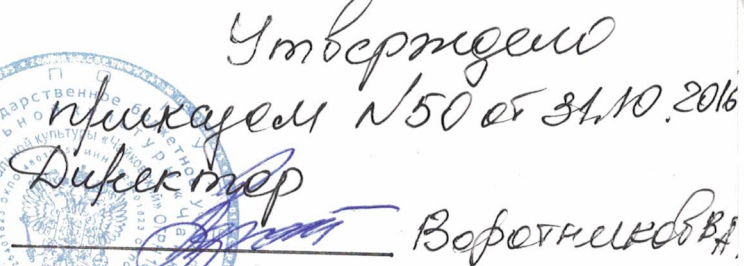 Утверждено
приказом №50 от 31.10.2016
Директор
Воротников В.А.